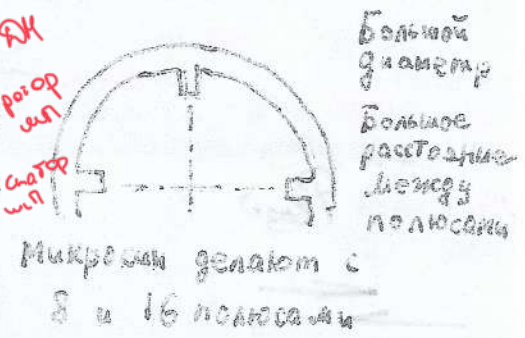 ДМ
ротор
шп
статор
шп
Большой
диаметр
Большое
расстояние
между
полюсами
Микросин делают с
8 и 16 полюсами